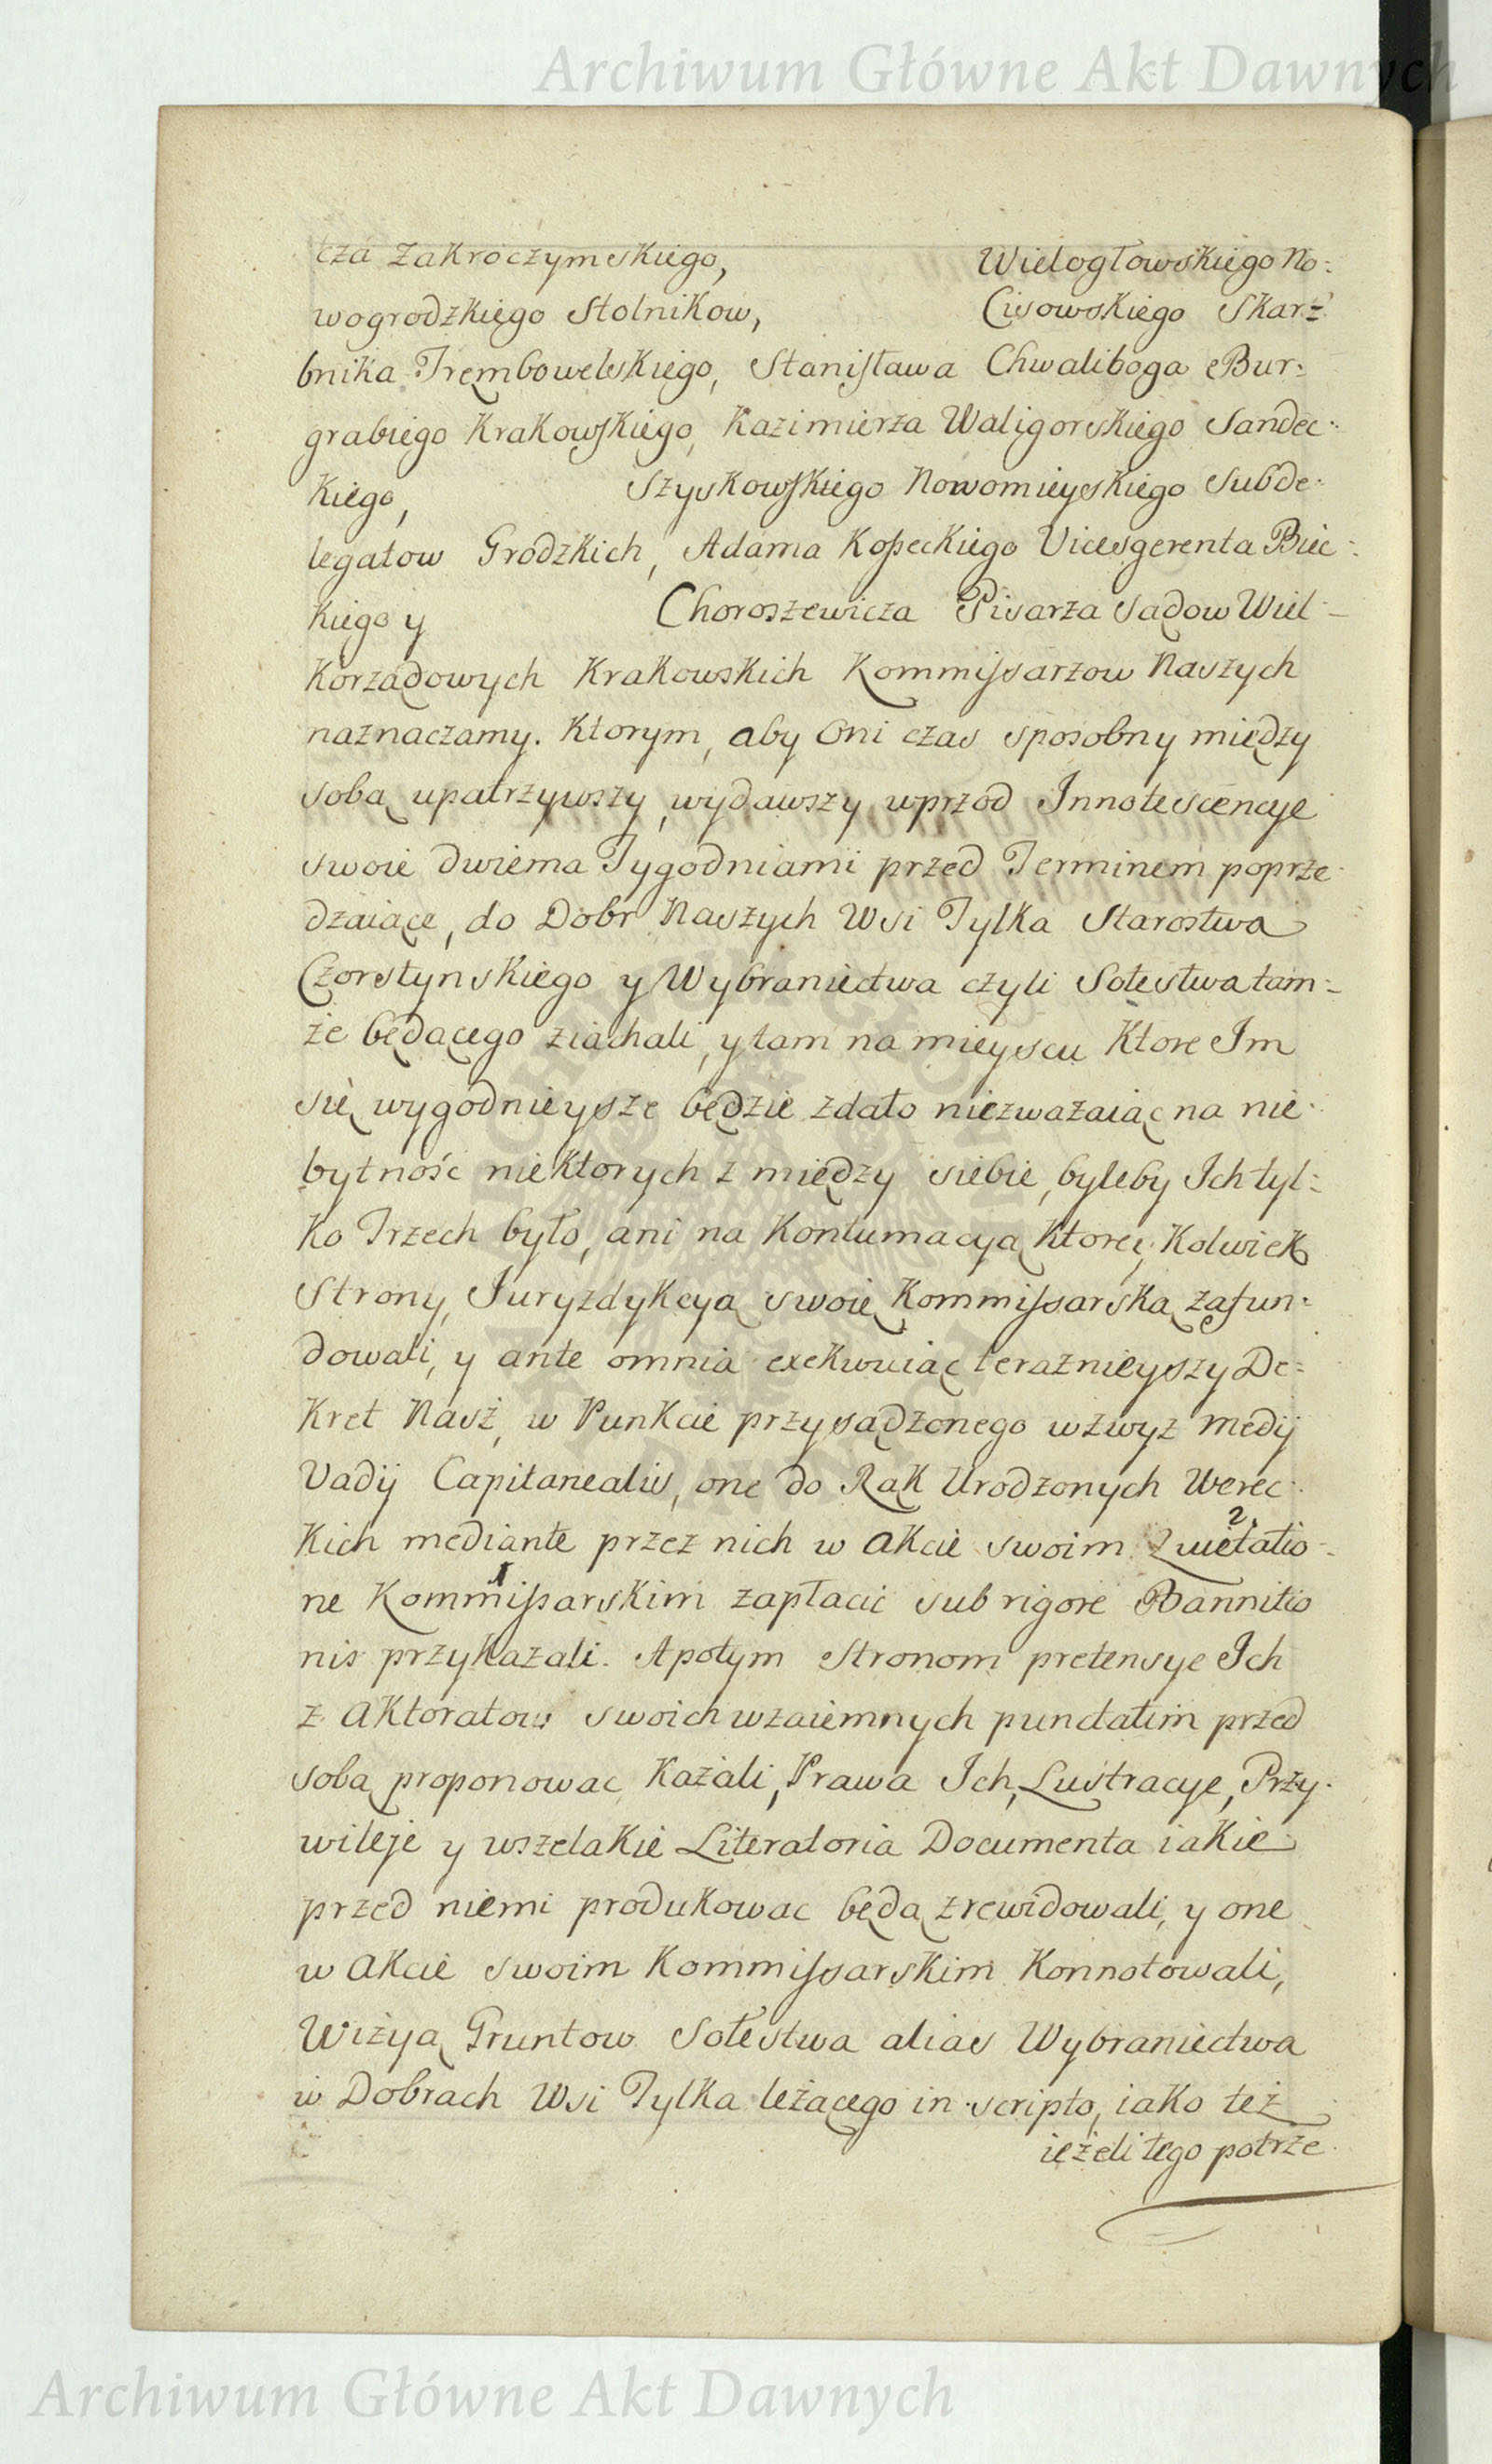 Archiwum Główne Akt Dawnych
cza Zakroczymskiego, Wielogłowskiego No:
wogrodzkiego Stolnikow, Cisowskiego Skar:
bnika Trembowelskiego, Stanisława Chwaliboga Bur:
grabiego Krakowskiego, Kazimierza Waligorskiego Sandec:
kiego, Szyskowskiego Nowomieyskiego Subde:
legatow Grodzkich, Adama Kopeckiego Vicesgerenta Biec:
kiego y Choroszewicza Pisarza Sądow Wiel-
korządowych Krakowskich Kommissarzow Naszych
naznaczamy. Ktorym, aby Oni czas sposobny między
sobą upatrzywszy, wydawszy wprzod Innotescencye
swoie dwiema Tygodniami przed Terminem poprze:
dzaiące, do Dobr Naszych Wsi Tylka Starostwa
Czorstynskiego y Wybraniectwa czyli Sołestwa tam:
że będącego ziachali, y tam na mieyscu ktore Im
się wygodnieysze będzie zdało niezważaiąc na nie:
bytność niektorych z między siebie, byleby Ich tyl:
ko Trzech było, ani na Kontumacyą ktorey kolwiek
Strony, Juryzdykcyą swoię Kommissarską zafun:
dowali, y ante omnia exekwuiąc teraznieyszy De:
kret Nasż, w Punkcie przysądzonego wzwyz Medij
Vadij Capitanealis, one do Rąk Urodzonych Werec:
kich mediante przez nich w Akcie swoim 2. Quietatio:
ne Kommissarskim 1 zapłacić sub rigore Bannitio
nis przykazali. A potym Stronom pretensye Ich
z Aktoratow swoich wzaiemnych punctatim przed
sobą proponowac kazali, Prawa Ich, Lustracye, Przy:
wileje y wszelakie Literatoria Documenta iakie
przed niemi produkowac będą zrewidowali, y one
w Akcie swoim Kommissarskim konnotowali,
Wizyą Gruntow Sołestwa alias Wybraniectwa
w Dobrach Wsi Tylka leżącego in scripto, iako też
ieżeli tego potrze:
Archiwum Główne Akt Dawnych